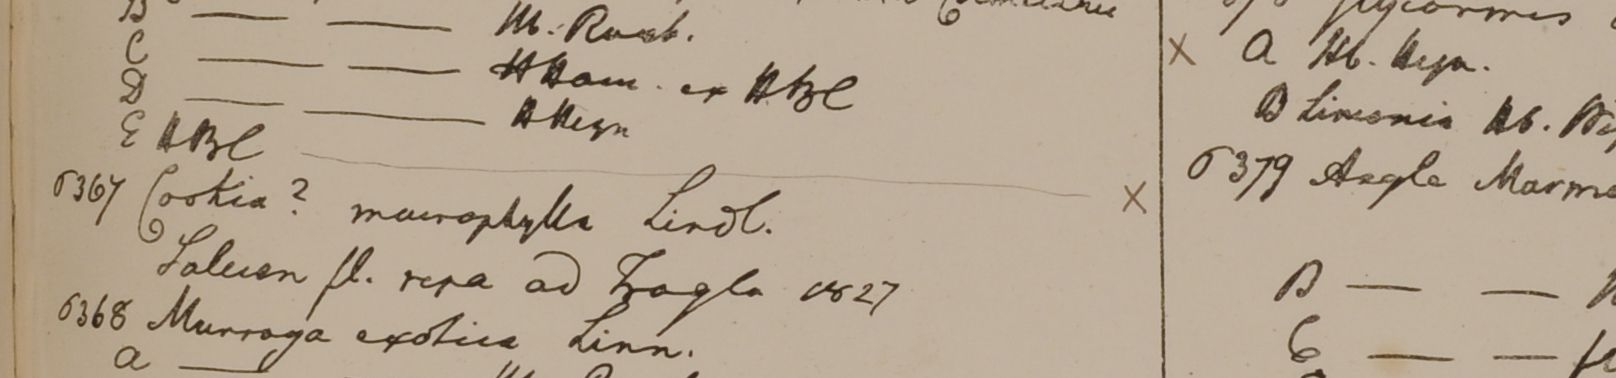 B — — Hb. Roxb.
C — — HHam. ex HBC
D — — HHeyn
E HBC
6367 Cookia? macrophylla Lindl.
Saluen fl. ripa ad Trogla 1827
6368 Murraya exotica Linn.
a —
glycosmis
X a Hb. Heyn.
B Limonia Hb.
X 6379 Aegle Marme
B — —
C — —